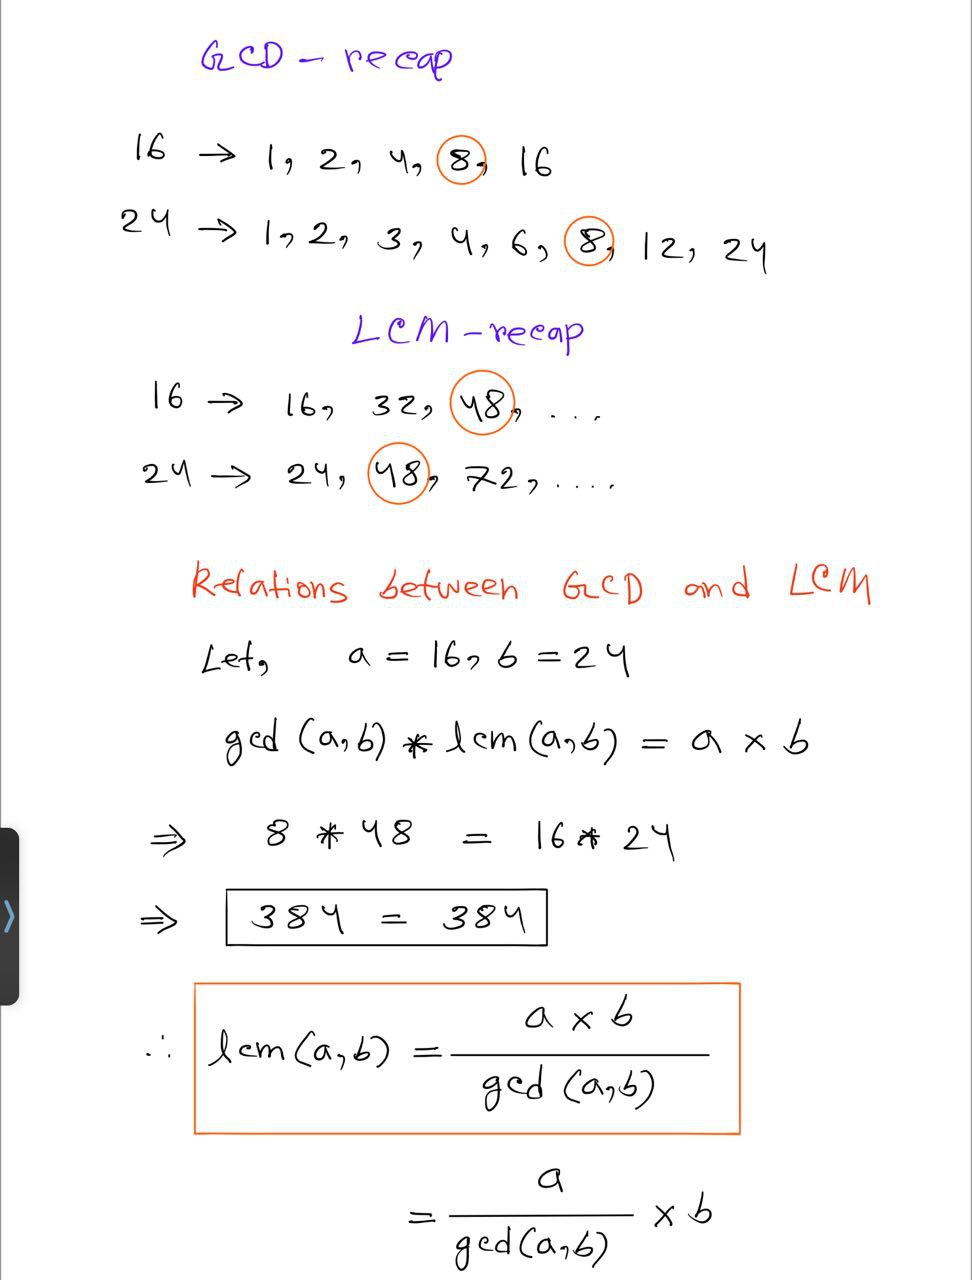 GCD - recap
16 → 1, 2, 4, 8, 16
24 → 1, 2, 3, 4, 6, 8, 12, 24
LCM - recap
16 → 16, 32, 48, ...
24 → 24, 48, 72, ....
Relations between GCD and LCM
Let, a = 16, b = 24
gcd (a, b) * lcm (a, b) = a × b
⇒ 8 * 48 = 16 * 24
⇒ 384 = 384
∴ lcm (a, b) = a × b / gcd (a, b)
= a / gcd (a, b) × b